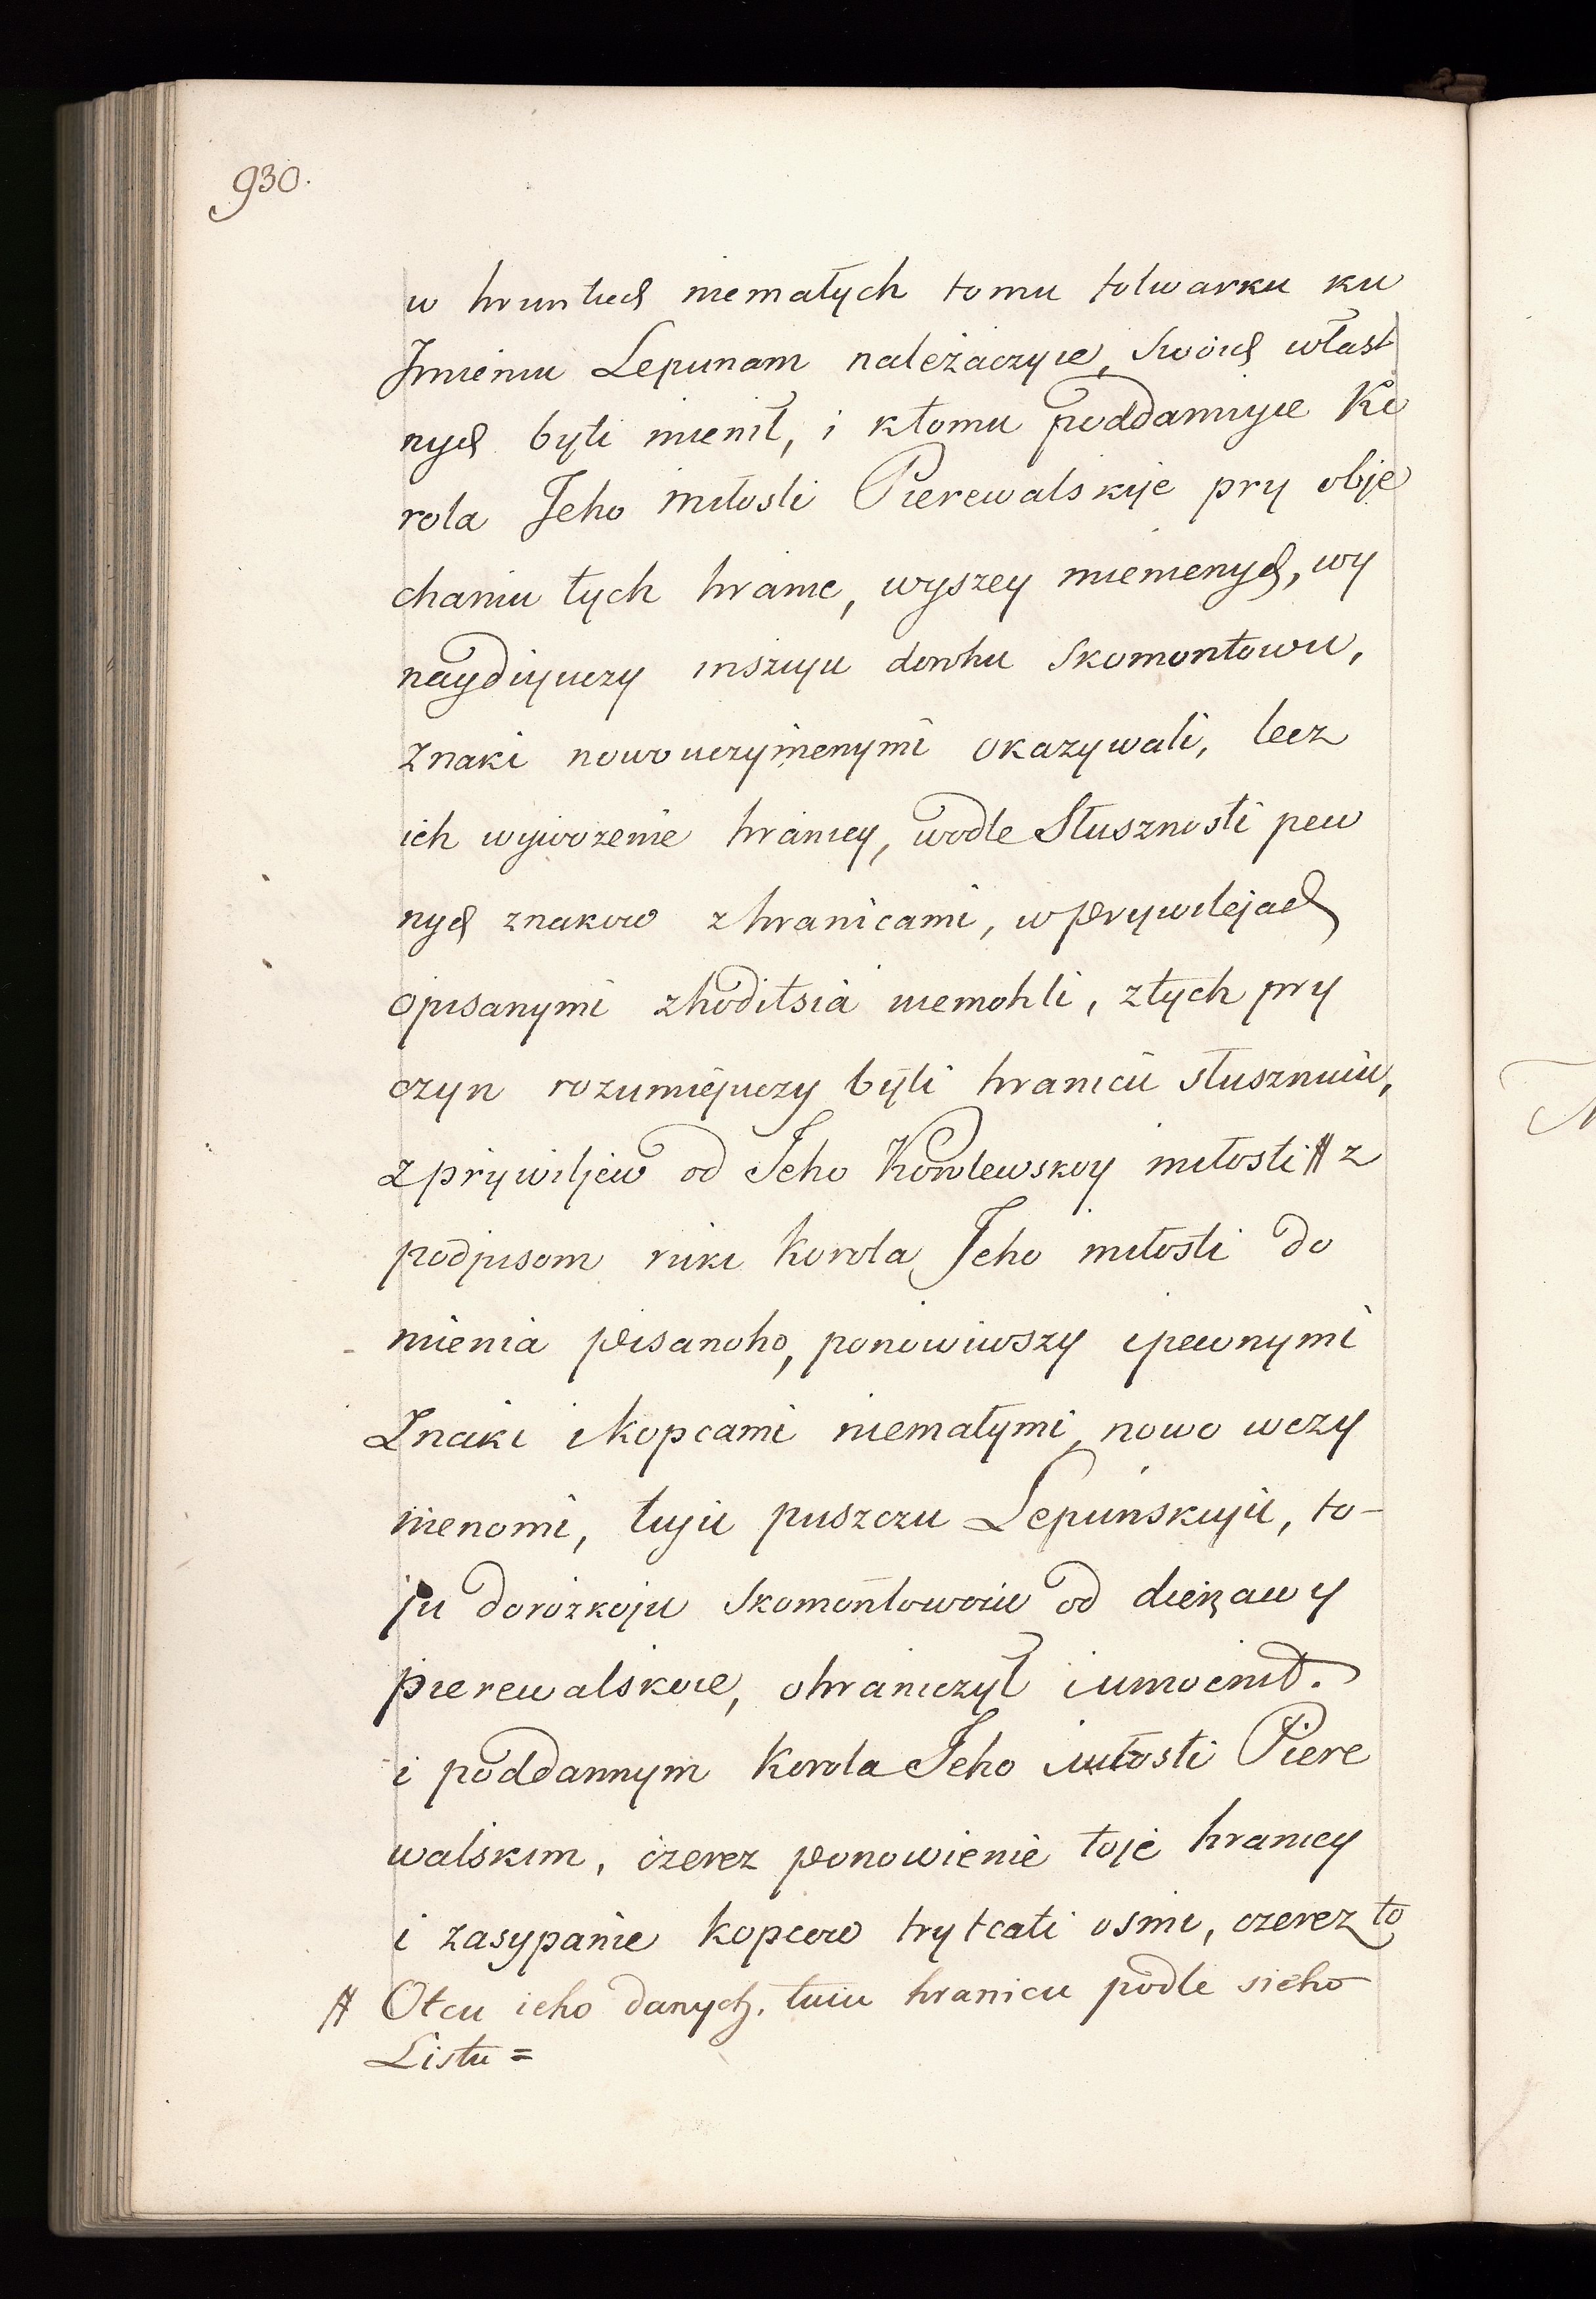 930.
w hruntech niemałych tomu folwarku ku
Imieniu Lepunam należaczyie, swoich włast
nych byti mienił, i ktomu poddannyie Ko
rola Jeho miłosti Pierewalskije pry obje
chaniu tych hranic, wyszey mienienych, wy
naydiyuczy inszuju dorohu Skomontowu,
Znaki nowouczynienymi okazywali, lecz
ich wywożenie hranicy, wodle Słusznosti pew
nych znakow z hranicami, w prywilejach
opisanymi zhoditsia niemohli, z tych pry
czyn rozumiejuczy byti hranicu słusznuiu,
z prywiljew od Jeho Korolewskoy miłosti # z
podpisom ruki Korola Jeho miłosti do
mienia pisanoho, ponowiwszy i pewnymi
Znaki i kopcami niematymi, nowo wczy
nienomi, tuju puszczu Lepunskuju, to-
ju dorożkoju Skomontowoiu od dierżawy
pierewalskoie, ohraniczył i umocnił.
i poddannym Korola Jeho miłosti Piere
walskim, czerez ponowienie toje hranicy
i zasypanie kopcow trytcati osmi, czerez to
# Otcu ieho danych, tuiu hranicu podle sieho
Listu =